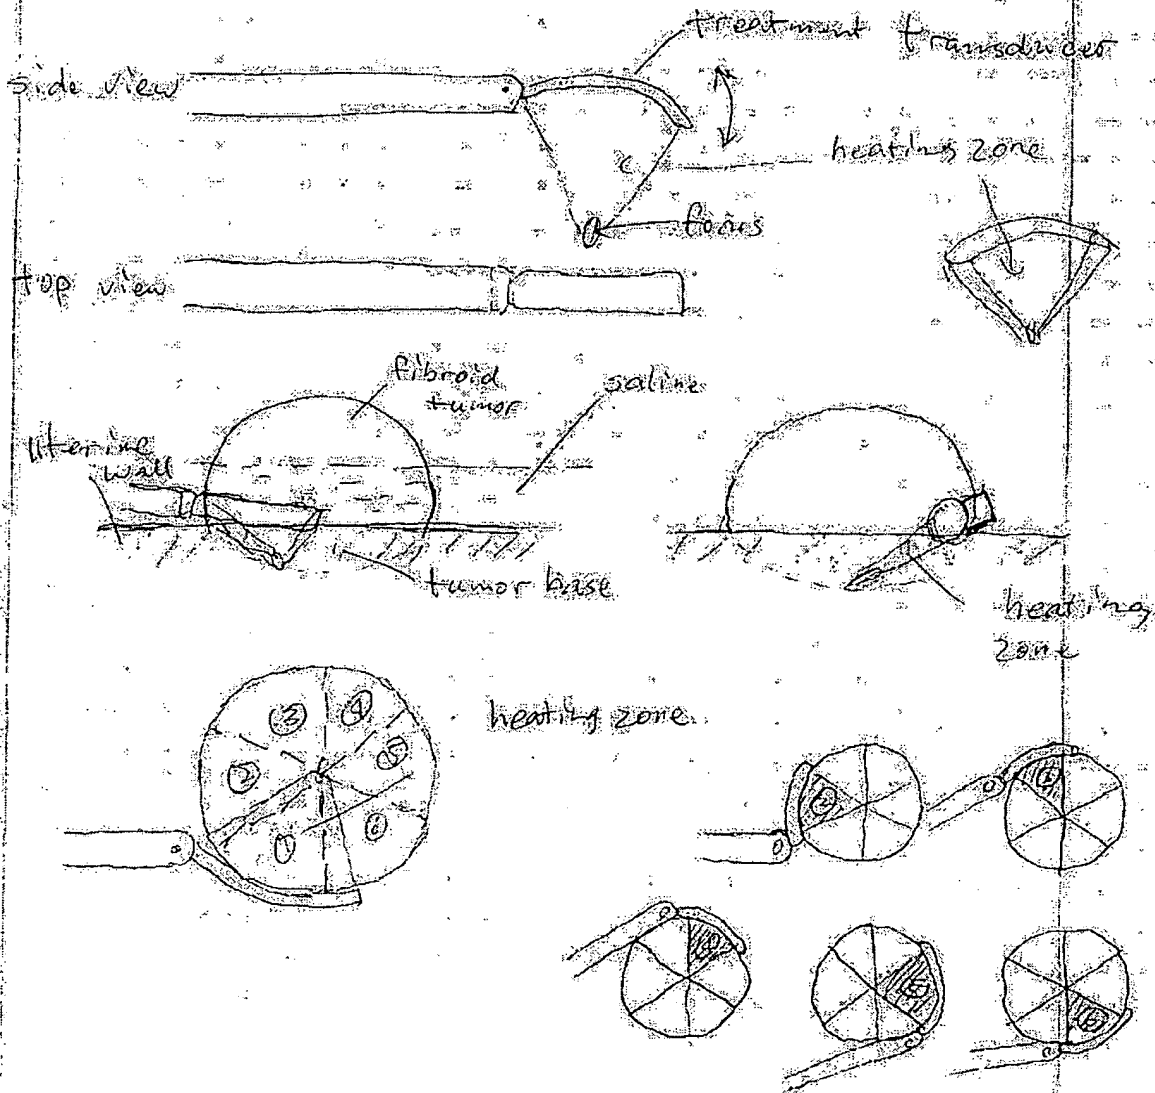 treatment transducer
side view
heating zone
focus
top view
fibroid
tumor
saline
Uterine
wall
tumor base
heating
zone
heating zone
3
4
2
5
1
6
2
4
5
6